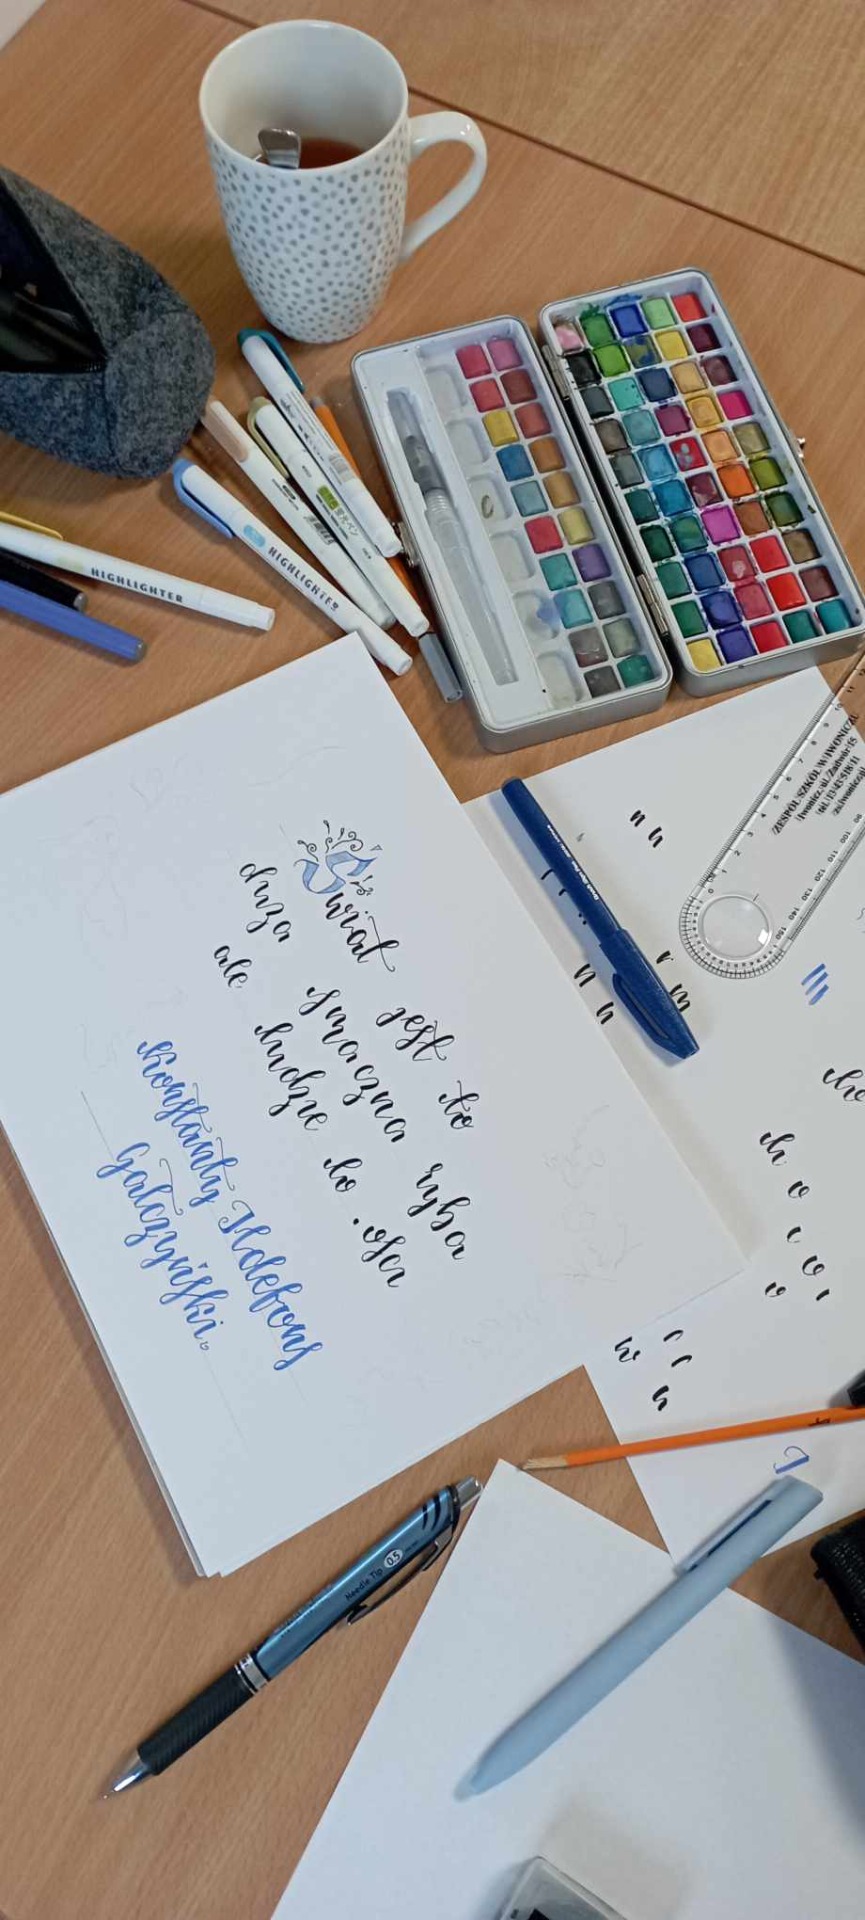 HIGHLIGHTER
HIGHLIGHTER
Świat jest to
duża smaczna ryba
ale ludzie to
Konstanty Ildefons
Gałczyński.
ZESPÓŁ SZKÓŁ W IWONICZU
Iwonicz, ul. Zadwór 15
n n
n n
Needle Tip 0.5